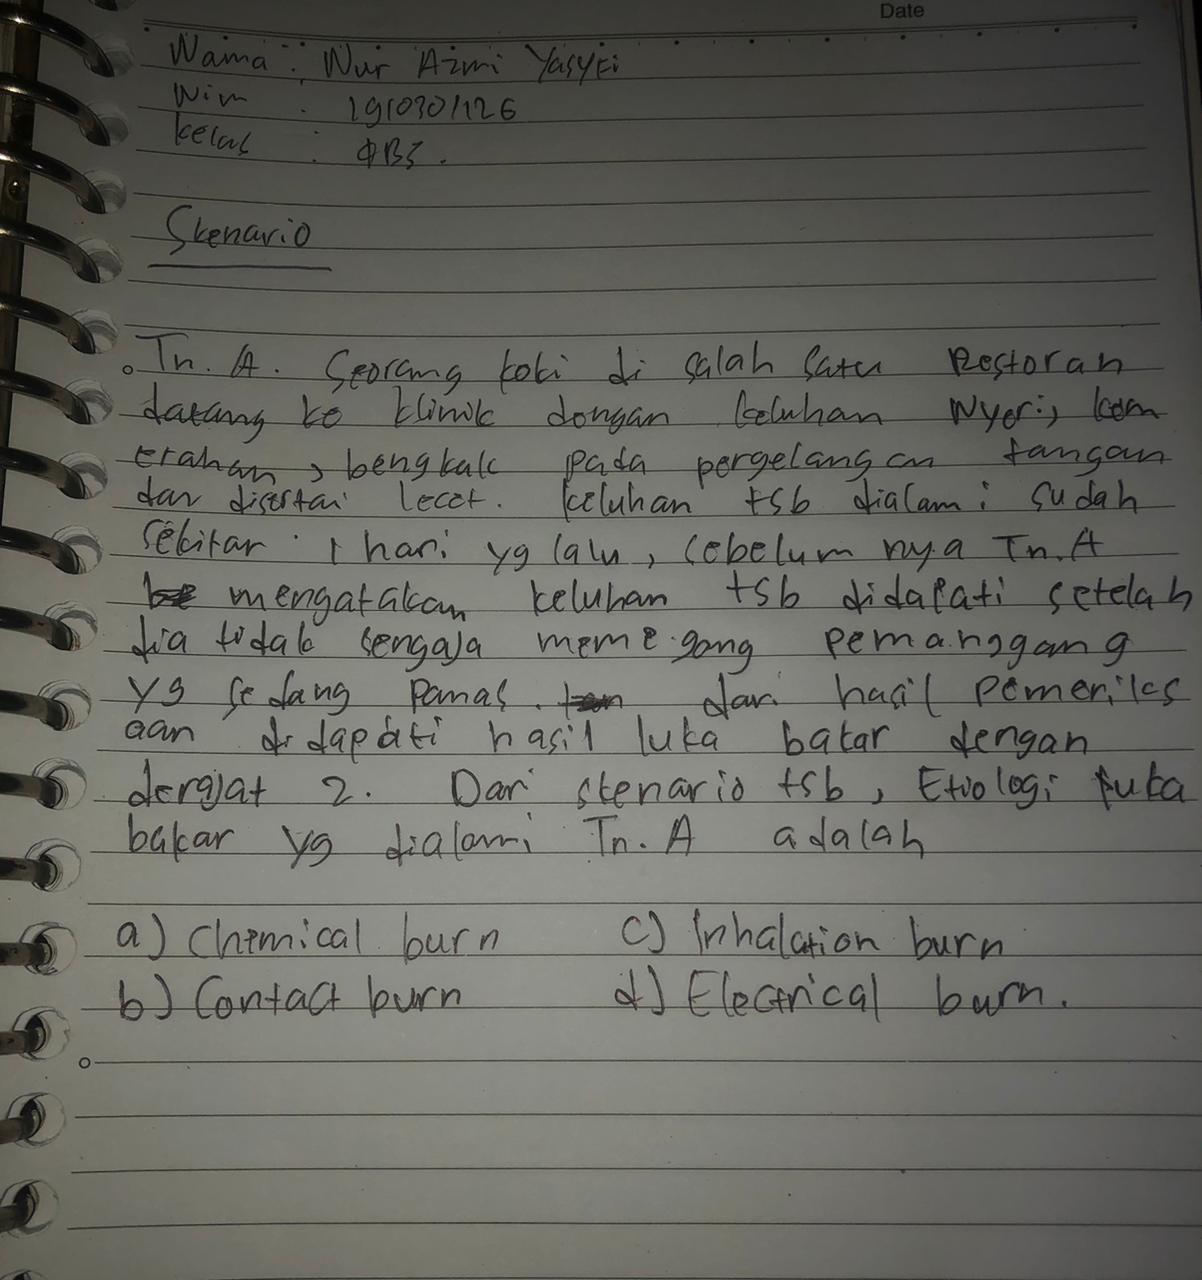 Date
Nama : Nur Azmi Yasyti
Nim : 1910301126
kelas :
Skenario
Tn. A. Seorang koki di salah satu Restoran
datang ke klinik dengan keluhan Nyeri, kem
erahan, bengkak pada pergelangan tangan
dan disertai lecet. keluhan tsb dialami sudah
sekitar 1 hari yg lalu, sebelum nya Tn. A
mengatakan keluhan tsb didapati setelah
dia tidak sengaja memegang pemanggang
yg sedang panas. dari hasil pemeriks
aan di dapati hasil luka bakar dengan
derajat 2. Dari skenario tsb, Etiologi luka
bakar yg dialami Tn. A adalah
a) Chemical burn c) Inhalation burn
b) Contact burn d) Electrical burn.